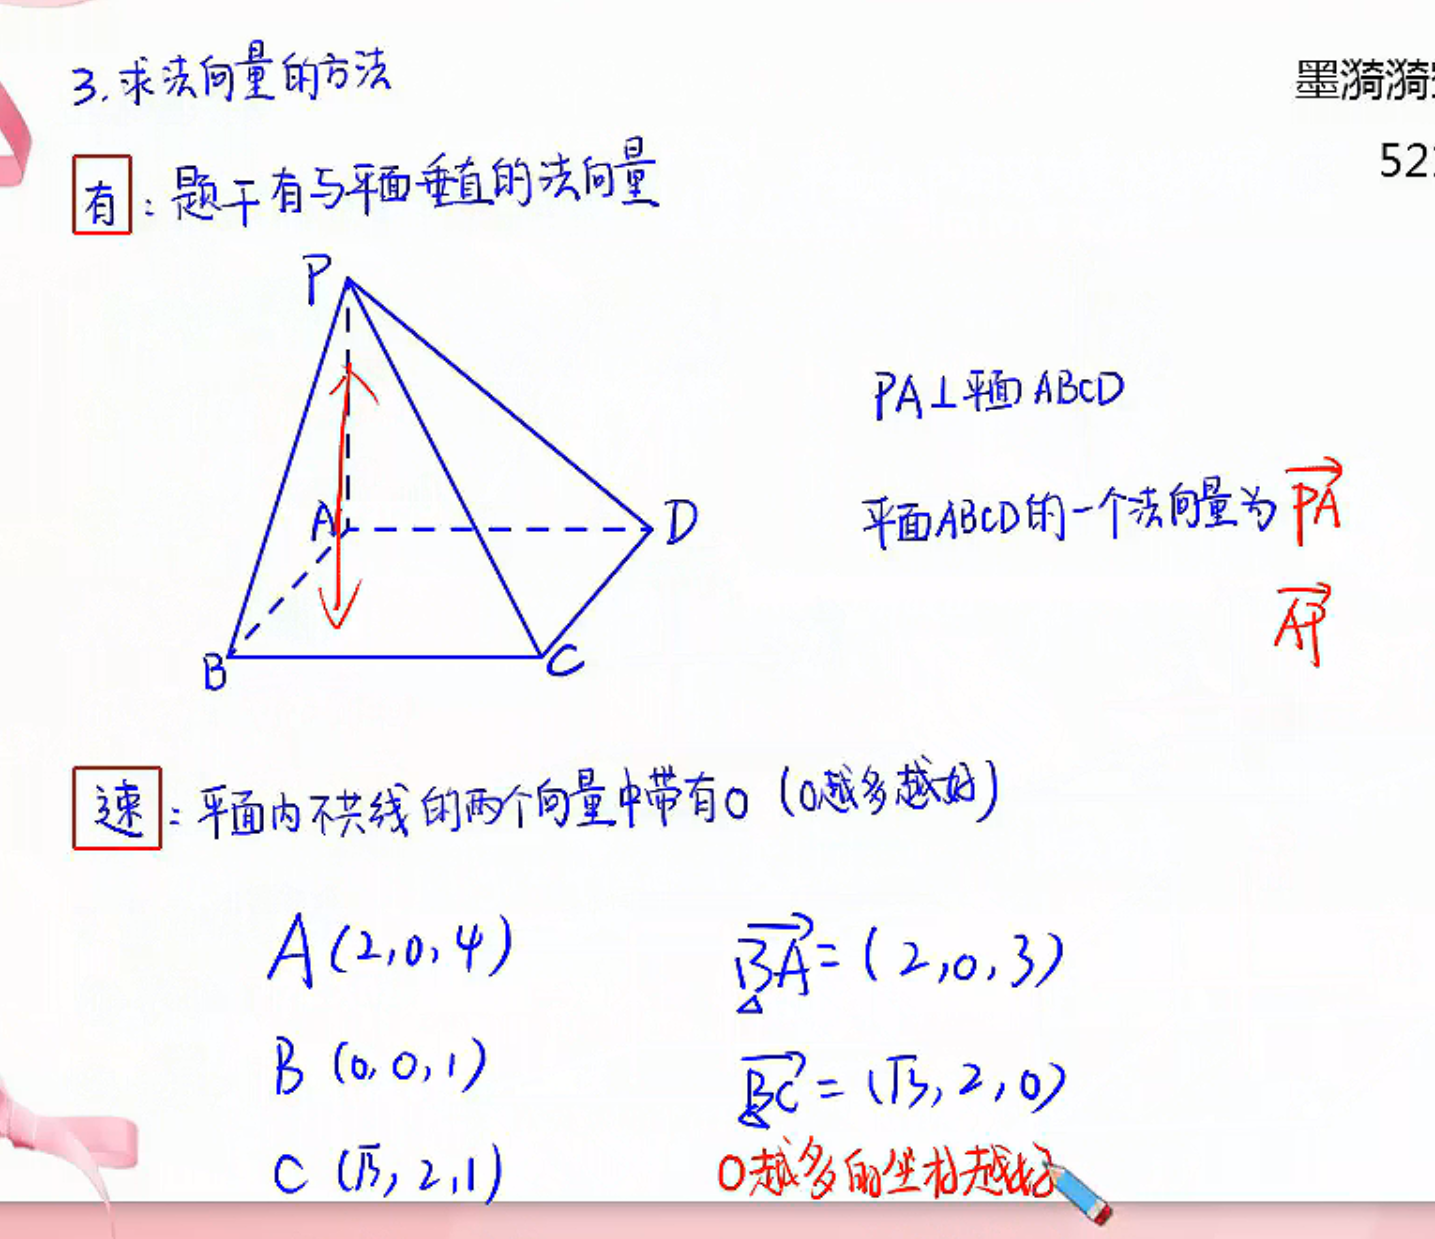 3.求法向量的方法
墨漪漪
52
有：题干有与平面垂直的法向量
P
A
D
B
C
PA⊥平面ABCD
平面ABCD的一个法向量为 PA
AP
速：平面内不共线的两个向量中带有0（0越多越好）
A(2,0,4)
BA=(2,0,3)
B(0,0,1)
BC=(√3,2,0)
C(√3,2,1)
0越多的坐标越好